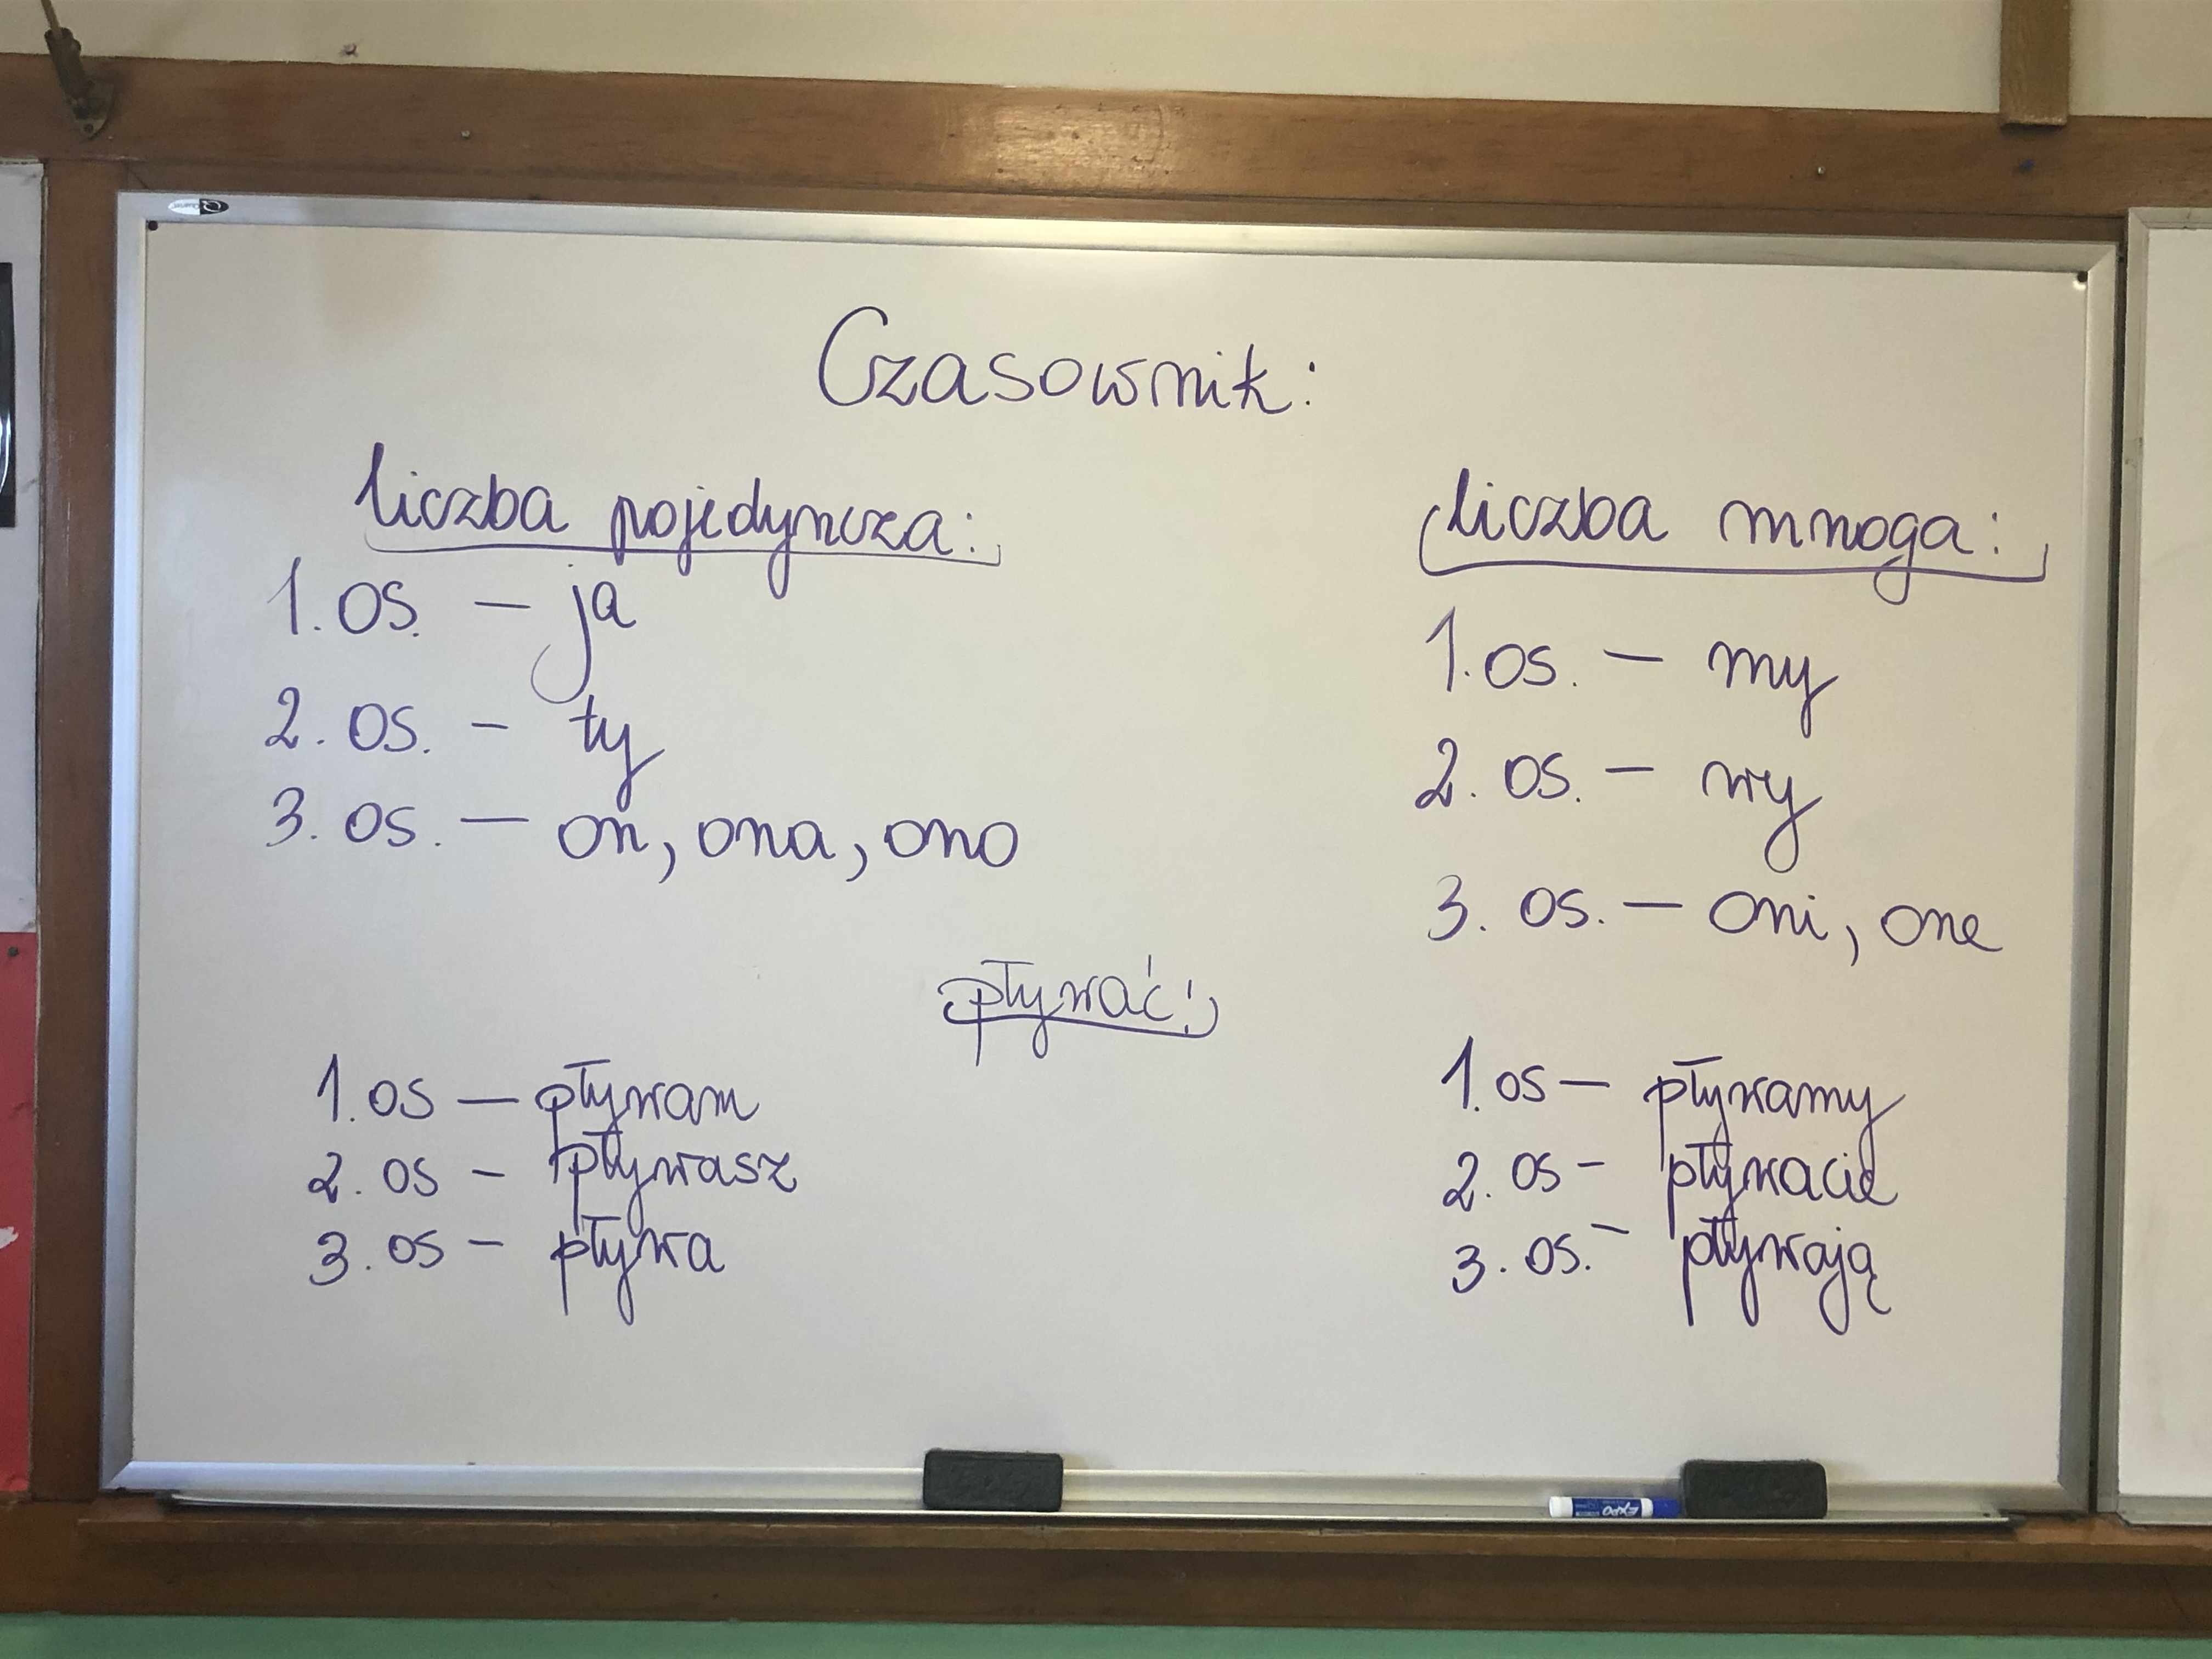 Czasownik:
liczba pojedyncza:
1. os. – ja
2. os. – ty
3. os. – on, ona, ono
liczba mnoga:
1. os. – my
2. os. – wy
3. os. – oni, one
pływać:
1. os – pływam
2. os – pływasz
3. os – pływa
1. os – pływamy
2. os – pływacie
3. os. – pływają
EXPO